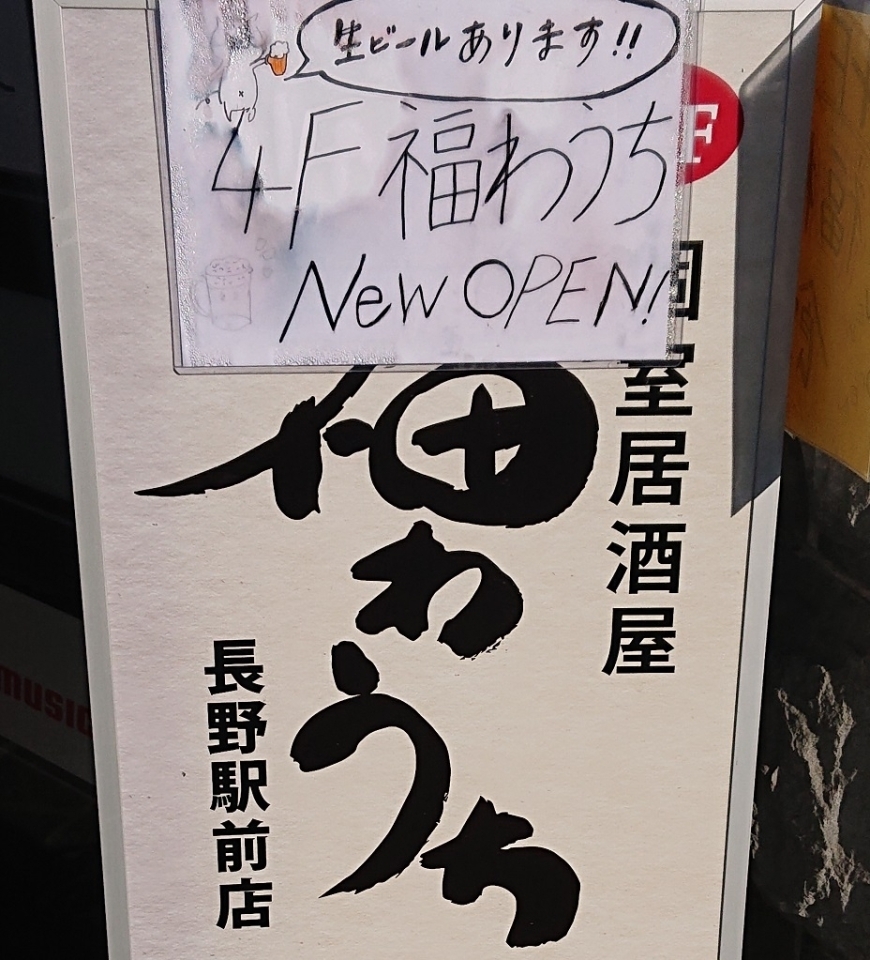 生ビールあります!!
4F 福わうち
New OPEN!
F
個室居酒屋
福わうち
長野駅前店
music